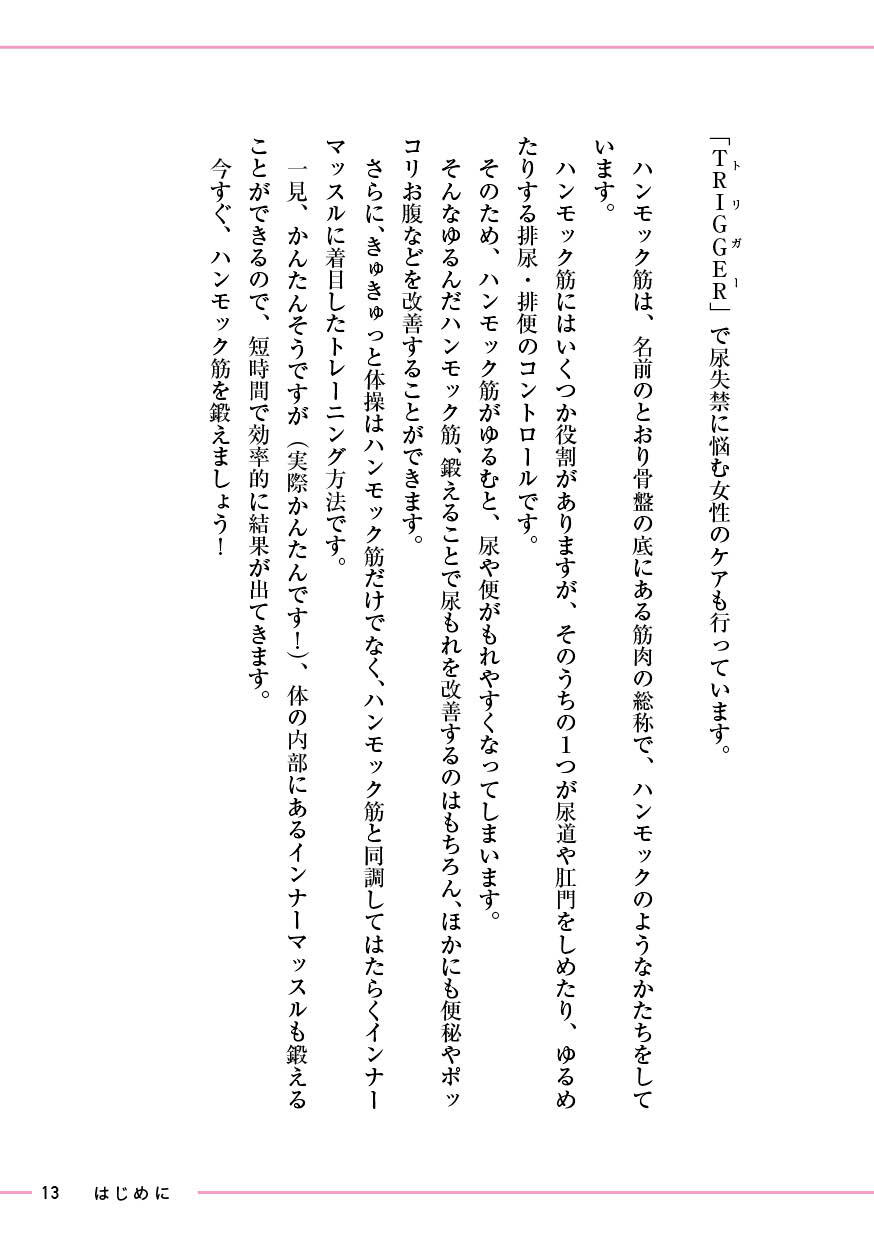 「TRIGGER」で尿失禁に悩む女性のケアも行っています。
トリガー
ハンモック筋は、名前のとおり骨盤の底にある筋肉の総称で、ハンモックのようなかたちをして
います。
ハンモック筋にはいくつか役割がありますが、そのうちの1つが尿道や肛門をしめたり、ゆるめ
たりする排尿・排便のコントロールです。
そのため、ハンモック筋がゆるむと、尿や便がもれやすくなってしまいます。
そんなゆるんだハンモック筋、鍛えることで尿もれを改善するのはもちろん、ほかにも便秘やポッ
コリお腹などを改善することができます。
さらに、きゅきゅっと体操はハンモック筋だけでなく、ハンモック筋と同調してはたらくインナー
マッスルに着目したトレーニング方法です。
一見、かんたんそうですが（実際かんたんです！）、体の内部にあるインナーマッスルも鍛える
ことができるので、短時間で効率的に結果が出てきます。
今すぐ、ハンモック筋を鍛えましょう！
13 はじめに